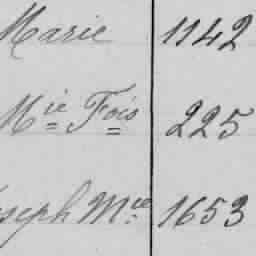 Marie 1142
Mie Fois 225
Joseph Mce 1653